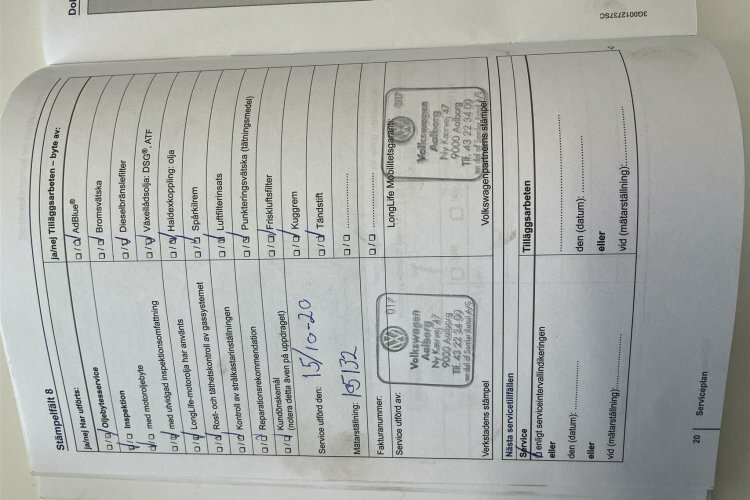 3G0012737SC
Stämpelfält 8
ja/nej Har utförts:
□/□ Oljebytesservice
□/□ Inspektion
□/□ med motoroljebyte
□/□ med utvidgad inspektionsomfattning
□/□ LongLife-motorolja har använts
□/□ Rost- och täthetskontroll av gassystemet
□/□ Kontroll av strålkastarinställningen
□/□ Reparationsrekommendation
□/□ Kundönskemål
(notera detta även på uppdraget)
Service utförd den: 15/10-20
Mätarställning:
Fakturanummer:
Service utförd av:
017
Volkswagen
Aalborg
Ny Kærvej 47
9000 Aalborg
Tlf. 43 22 34 00
en del af Semler Retail A/S
Verkstadens stämpel
ja/nej Tilläggsarbeten – byte av:
□/□ AdBlue®
□/□ Bromsvätska
□/□ Dieselbränslefilter
□/□ Växellådsolja: DSG®, ATF
□/□ Haldexkoppling: olja
□/□ Spårkilrem
□/□ Luftfilterinsats
□/□ Punkteringsvätska (tätningsmedel)
□/□ Friskluftsfilter
□/□ Kuggrem
□/□ Tändstift
□/□ ................
□/□ ................
LongLife Mobilitetsgaranti
017
Volkswagen
Aalborg
Ny Kærvej 47
9000 Aalborg
Tlf. 43 22 34 00
en del af Semler Retail A/S
Volkswagenpartnerns stämpel
Nästa servicetillfällen
Service
□ enligt serviceintervallindikeringen
eller
den (datum):
eller
vid (mätarställning):
Tilläggsarbeten
den (datum):
eller
vid (mätarställning):
20
Serviceplan